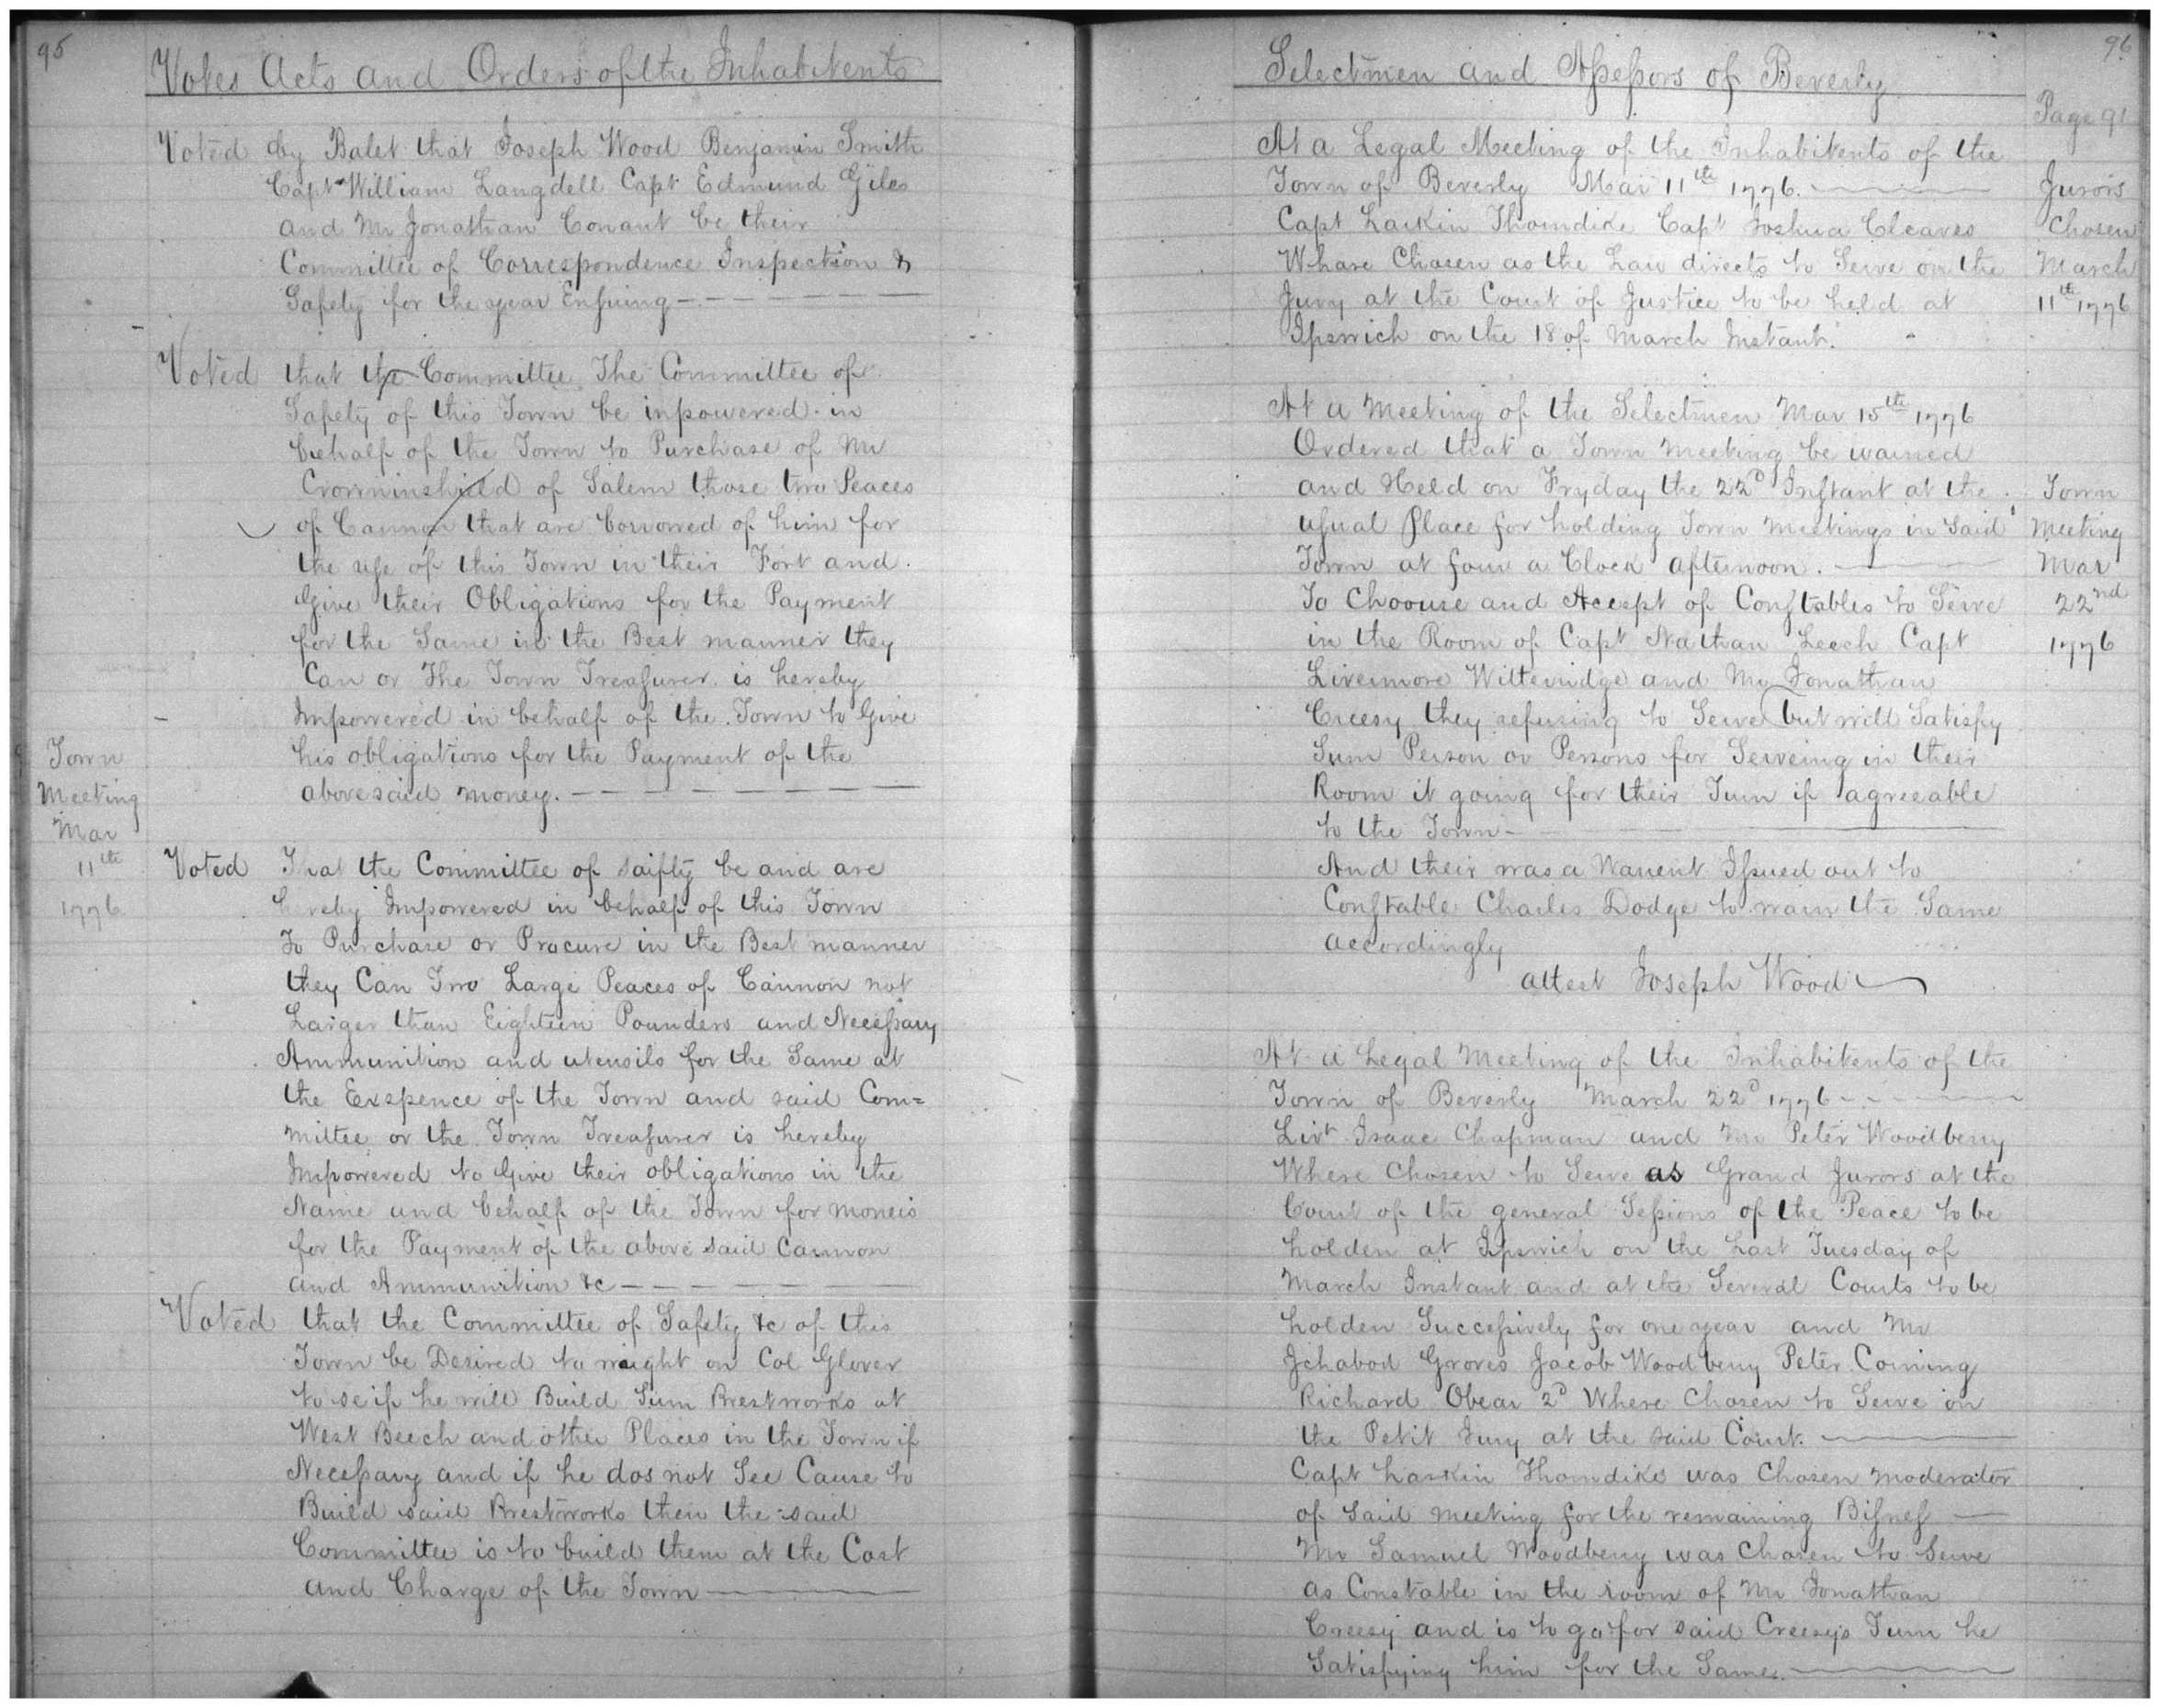 95
Votes Acts and Orders of the Inhabitents
Voted by Balet that Joseph Wood Benjamin Smith
Capt William Langdell Capt Edmund Giles
and Mr Jonathan Conant be their
Committee of Correspondence Inspection &
Safety for the year Ensuing
Voted that the Committee The Committee of
Safety of this Town be inpowered in
behalf of the Town to Purchase of Mr
Crowninshield of Salem those two Peaces
of Cannon that are borrowed of him for
the use of this Town in their Fort and
Give their Obligations for the Payment
for the Same in the Best manner they
Can or The Town Treasurer is hereby
Impowered in behalf of the Town to Give
his obligations for the Payment of the
abovesaid money.
Town
Meeting
Mar
11th
1776
Voted That the Committee of saifty be and are
hereby Impowered in behalf of this Town
To Purchase or Procure in the Best manner
they Can Two Large Peaces of Cannon not
Larger than Eighteen Pounders and Necessary
Ammunition and utensils for the Same at
the Exspence of the Town and said Com=
mittee or the Town Treasurer is hereby
Impowered to Give their obligations in the
Name and behalf of the Town for moneis
for the Payment of the above said Cannon
and Ammunition &c
Voted that the Committee of Safety &c of this
Town be Desired to waight on Col Glover
to se if he will Build Sum Brestworks at
West Beech and other Places in the Town if
Necessary and if he dos not See Cause to
Build said Brestworks then the said
Committee is to build them at the Cost
and Charge of the Town
96
Selectmen and Assessors of Beverly
Page 91
At a Legal Meeting of the Inhabitents of the
Town of Beverly Mar 11th 1776.
Capt Larkin Thorndike Capt Joshua Cleaves
Whare Chosen as the Law directs to Serve on the
Jury at the Court of Justice to be held at
Ipswich on the 18 of March Instant.
Jurors
Chosen
March
11th 1776
At a Meeting of the Selectmen Mar 15th 1776
Ordered that a Town Meeting be warned
and Held on Fryday the 22d Instant at the
usual Place for holding Town meetings in Said
Town at four a Clock afternoon.
To Choouse and Accept of Constables to Serve
in the Room of Capt Nathan Leech Capt
Livermore Witteridge and Mr Jonathan
Creesy they refusing to Serve but will Satisfy
Sum Person or Persons for Serveing in their
Room it going for their Turn if agreeable
to the Town
Town
Meeting
Mar
22nd
1776
And their was a Warrent Issued out to
Constable Charles Dodge to warn the Same
accordingly
attest Joseph Wood
At a Legal Meeting of the Inhabitents of the
Town of Beverly March 22d 1776
Livt Isaac Chapman and Mr Peter Woodberry
Where Chosen to Serve as Grand Jurors at the
Court of the general Sessions of the Peace to be
holden at Ipswich on the Last Tuesday of
March Instant and at the Several Courts to be
holden Successively for one year and Mr
Ichabod Groves Jacob Woodberry Peter Corning
Richard Obear 2d Where Chosen to Serve on
the Petit Jury at the said Court.
Capt Larkin Thorndike was Chosen moderator
of Said meeting for the remaining Bisness
Mr Samuel Woodberry was Chosen to Serve
as Constable in the room of Mr Jonathan
Creesy and is to go for said Creesy's Turn he
Satisfying him for the Same.